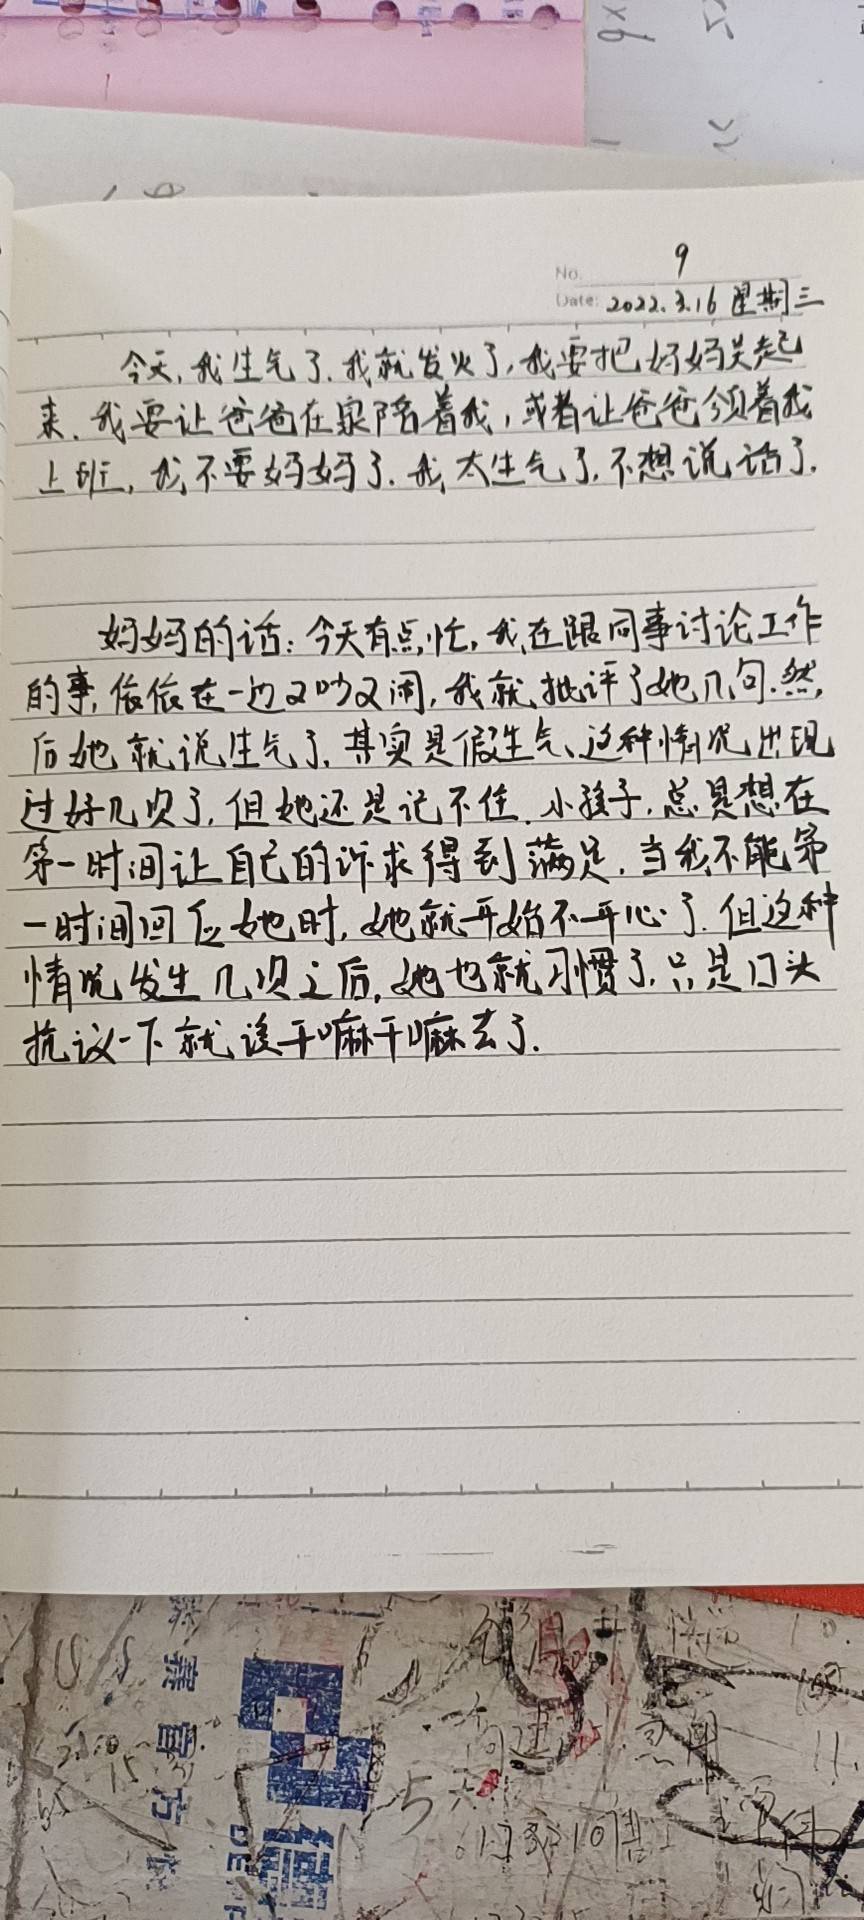 No. 9
Date: 2022.3.16 星期三
今天,我生气了.我就发火了,我要把妈妈关起
来.我要让爸爸在家陪着我,或者让爸爸领着我
上班,我不要妈妈了.我太生气了.不想说话了.
妈妈的话:今天有点忙,我在跟同事讨论工作
的事,依依在一边又吵又闹,我就批评了她几句.然
后她就说生气了.其实是假生气、这种情况出现
过好几次了,但她还是记不住.小孩子,总是想在
第一时间让自己的诉求得到满足.当我不能第
一时间回应她时,她就开始不开心了.但这种
情况发生几次之后,她也就习惯了.只是口头
抗议一下就该干嘛干嘛去了.